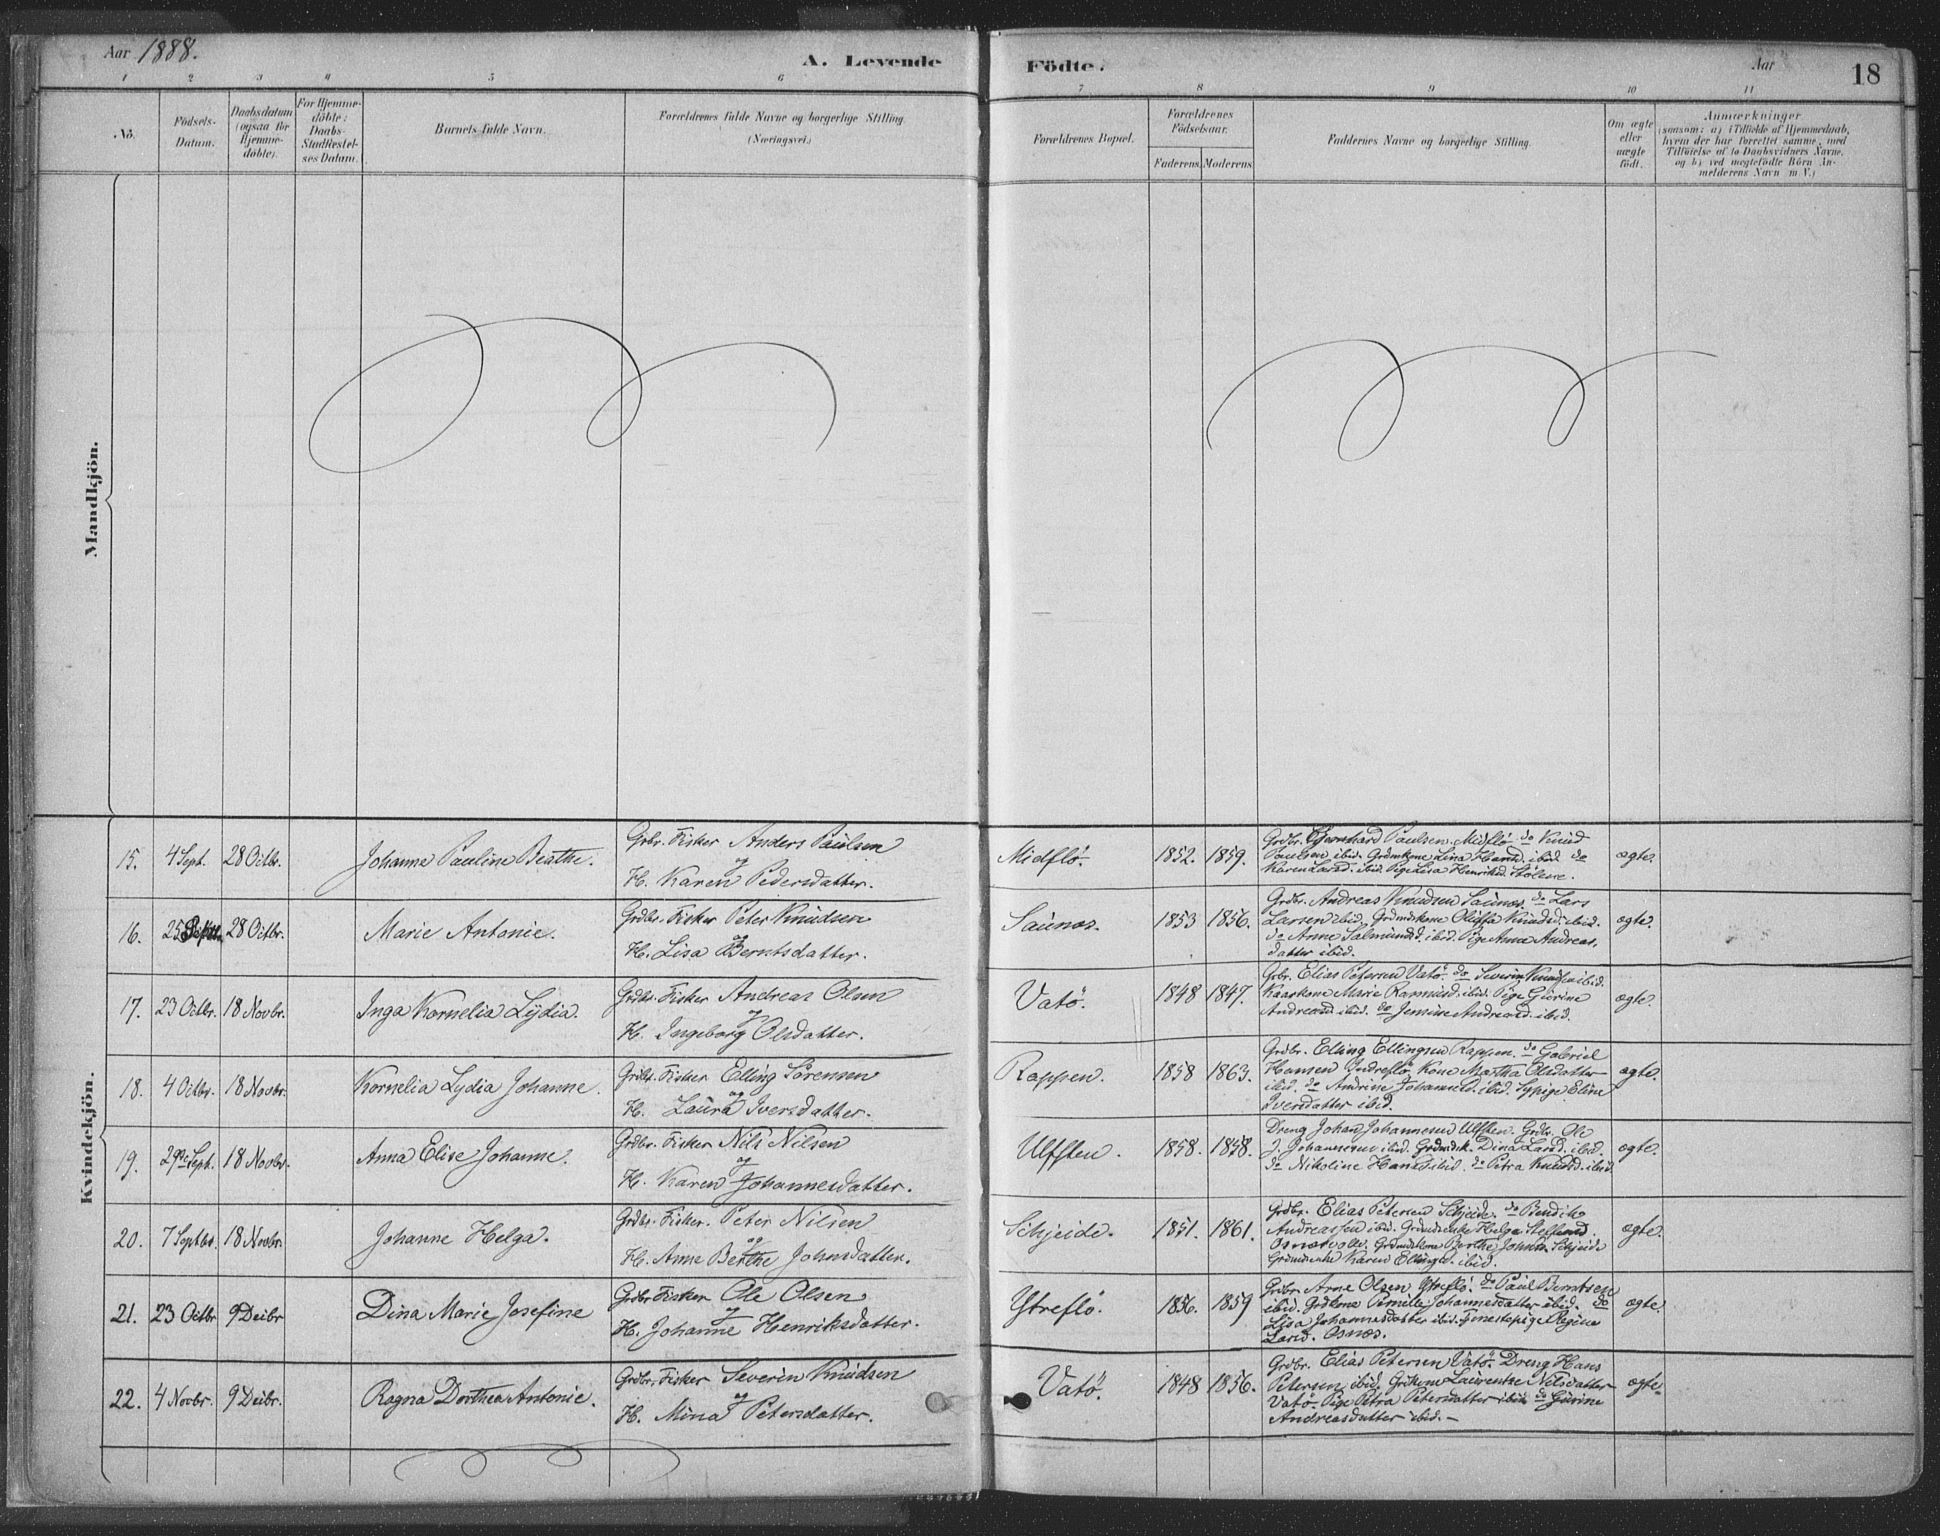 Aar 1888.
A. Levende Födte.
Aar
18
1 2 3 4 5 6 7 8 9 10 11
No.
Födsels-Datum.
Daabsdatum (ogsaa for Hjemme-döbte).
For Hjemme-döbte: Daabs-Stadfæstel-ses Datum.
Barnets fulde Navn.
Forældrenes fulde Navne og borgerlige Stilling.
(Næringsvei.)
Forældrenes Bopæl.
Forældrenes Födselsaar.
Faderens. Moderens.
Faddernes Navne og borgerlige Stilling.
Om ægte eller uægte födt.
Anmærkninger
(saasom: a) i Tilfælde af Hjemmedaab,
hvem der har forrettet samme, med
Tilföielse af to Daabsvidners Navne,
og b) ved uægtefödte Börn An-
melderens Navn m. V.)
Mandkjön.
Kvindekjön.
15. 4 Sept. 28 Octbr. Johanne Pauline Beathe. Grbr. Fisker Anders Paulsen
og
H. Karen Pedersdatter.
Midflö. 1852. 1859.
Grdbr. Bernhard Paulsen Midflö. do Knud
Paulsen ibid. Grdmkone Lina Hansd. ibid do
Karen Larsd. ibid. Pige Lisa Henriksd. Stölene.
ægte.
16. 25 28 Octbr. Marie Antonie. Grdbr. Fisker Peter Knudsen
og
H. Lisa Berntsdatter.
Saunos. 1853 1856.
Grdbr. Andreas Knudsen Saunos. do Lars
Larsen ibid. Grdmdskone Oluffa Knudsd. ibid.
do Anne Salmundsd. ibid. Pige Anna Andreas-
datter ibid.
ægte.
17. 23 Octbr. 18 Novbr. Inga Kornelia Lydia. Grdbr. Fisker Andreas Olsen
og
H. Ingeborg Olsdatter.
Vatö. 1848 1847.
Grbr. Elias Petersen Vatö. do Severin Knudsen ibid.
Kaarkone Marie Rasmusd. ibid. Pige Gurine
Andreasd. ibid. do Jensine Andreasd. ibid.
ægte.
18. 4 Octbr. 18 Novbr. Kornelia Lydia Johanne. Grdbr. Fisker Elling Sörensen
og
H. Laura Iversdatter.
Rappen. 1858 1863.
Grdbr. Elling Ellingsen Rappen. do Gabriel
Hansen Indreflö, Kone Martha Olsdatter
ibid. do Andrine Johannesd. ibid. Pige Eline
Iversdatter ibid.
ægte.
19. 29de Sept. 18 Novbr. Anna Elise Johanne. Grdbr. Fisker Nils Nilsen
og
H. Karen Johannesdatter.
Ulfsten. 1858. 1858.
Dreng Johan Johannesen Ulfsten. Grdbr. Ole
J. Johannesen ibid. Grdmdsk. Dina Larsd. ibid.
do Nikoline Hansd. ibid. do Petra Knudsd. ibid
ægte.
20. 7 Septbr. 18 Novbr. Johanne Helga. Grdbr. Fisker. Peter Nilsen
og
H. Anne Berthe Johnsdatter.
Schjeide. 1851. 1861.
Grdbr. Elias Petersen Schjeide. do Bendik
Andreassen ibid. Grdmdsenke Helga
Osnæsvold. Grdmdskone Berthe Johnsd. Schjeide
Grdmdenke Karen Ellingsd. ibid.
ægte.
21. 23 Octbr 9 Decbr Dina Marie Josefine Grdbr. Fisker Ole Olsen
og
H. Johanne Henriksdatter.
Ytreflö. 1856. 1859
Grdbr. Arne Olsen Ytreflö. do Paul Berntsen
ibid. Grdkone Pernille Johannesdatter ibid. do
Lisa Johannesdatter ibid. Tjenestepige Regine
Larsd. Osnæs.
ægte
22. 4 Novbr. 9 Decbr. Ragna Dorthea Antonie. Grdbr. Fisker Severin Knudsen
og
H. Mina Petersdatter.
Vatö. 1848 1856.
Grdbr. Elias Petersen Vatö. Dreng Hans
Petersen ibid. Grdkone Laurentse Nilsdatter
Vatö. Pige Petra Petersdatter ibid. do Gurine
Andreasdatter ibid.—
ægte.